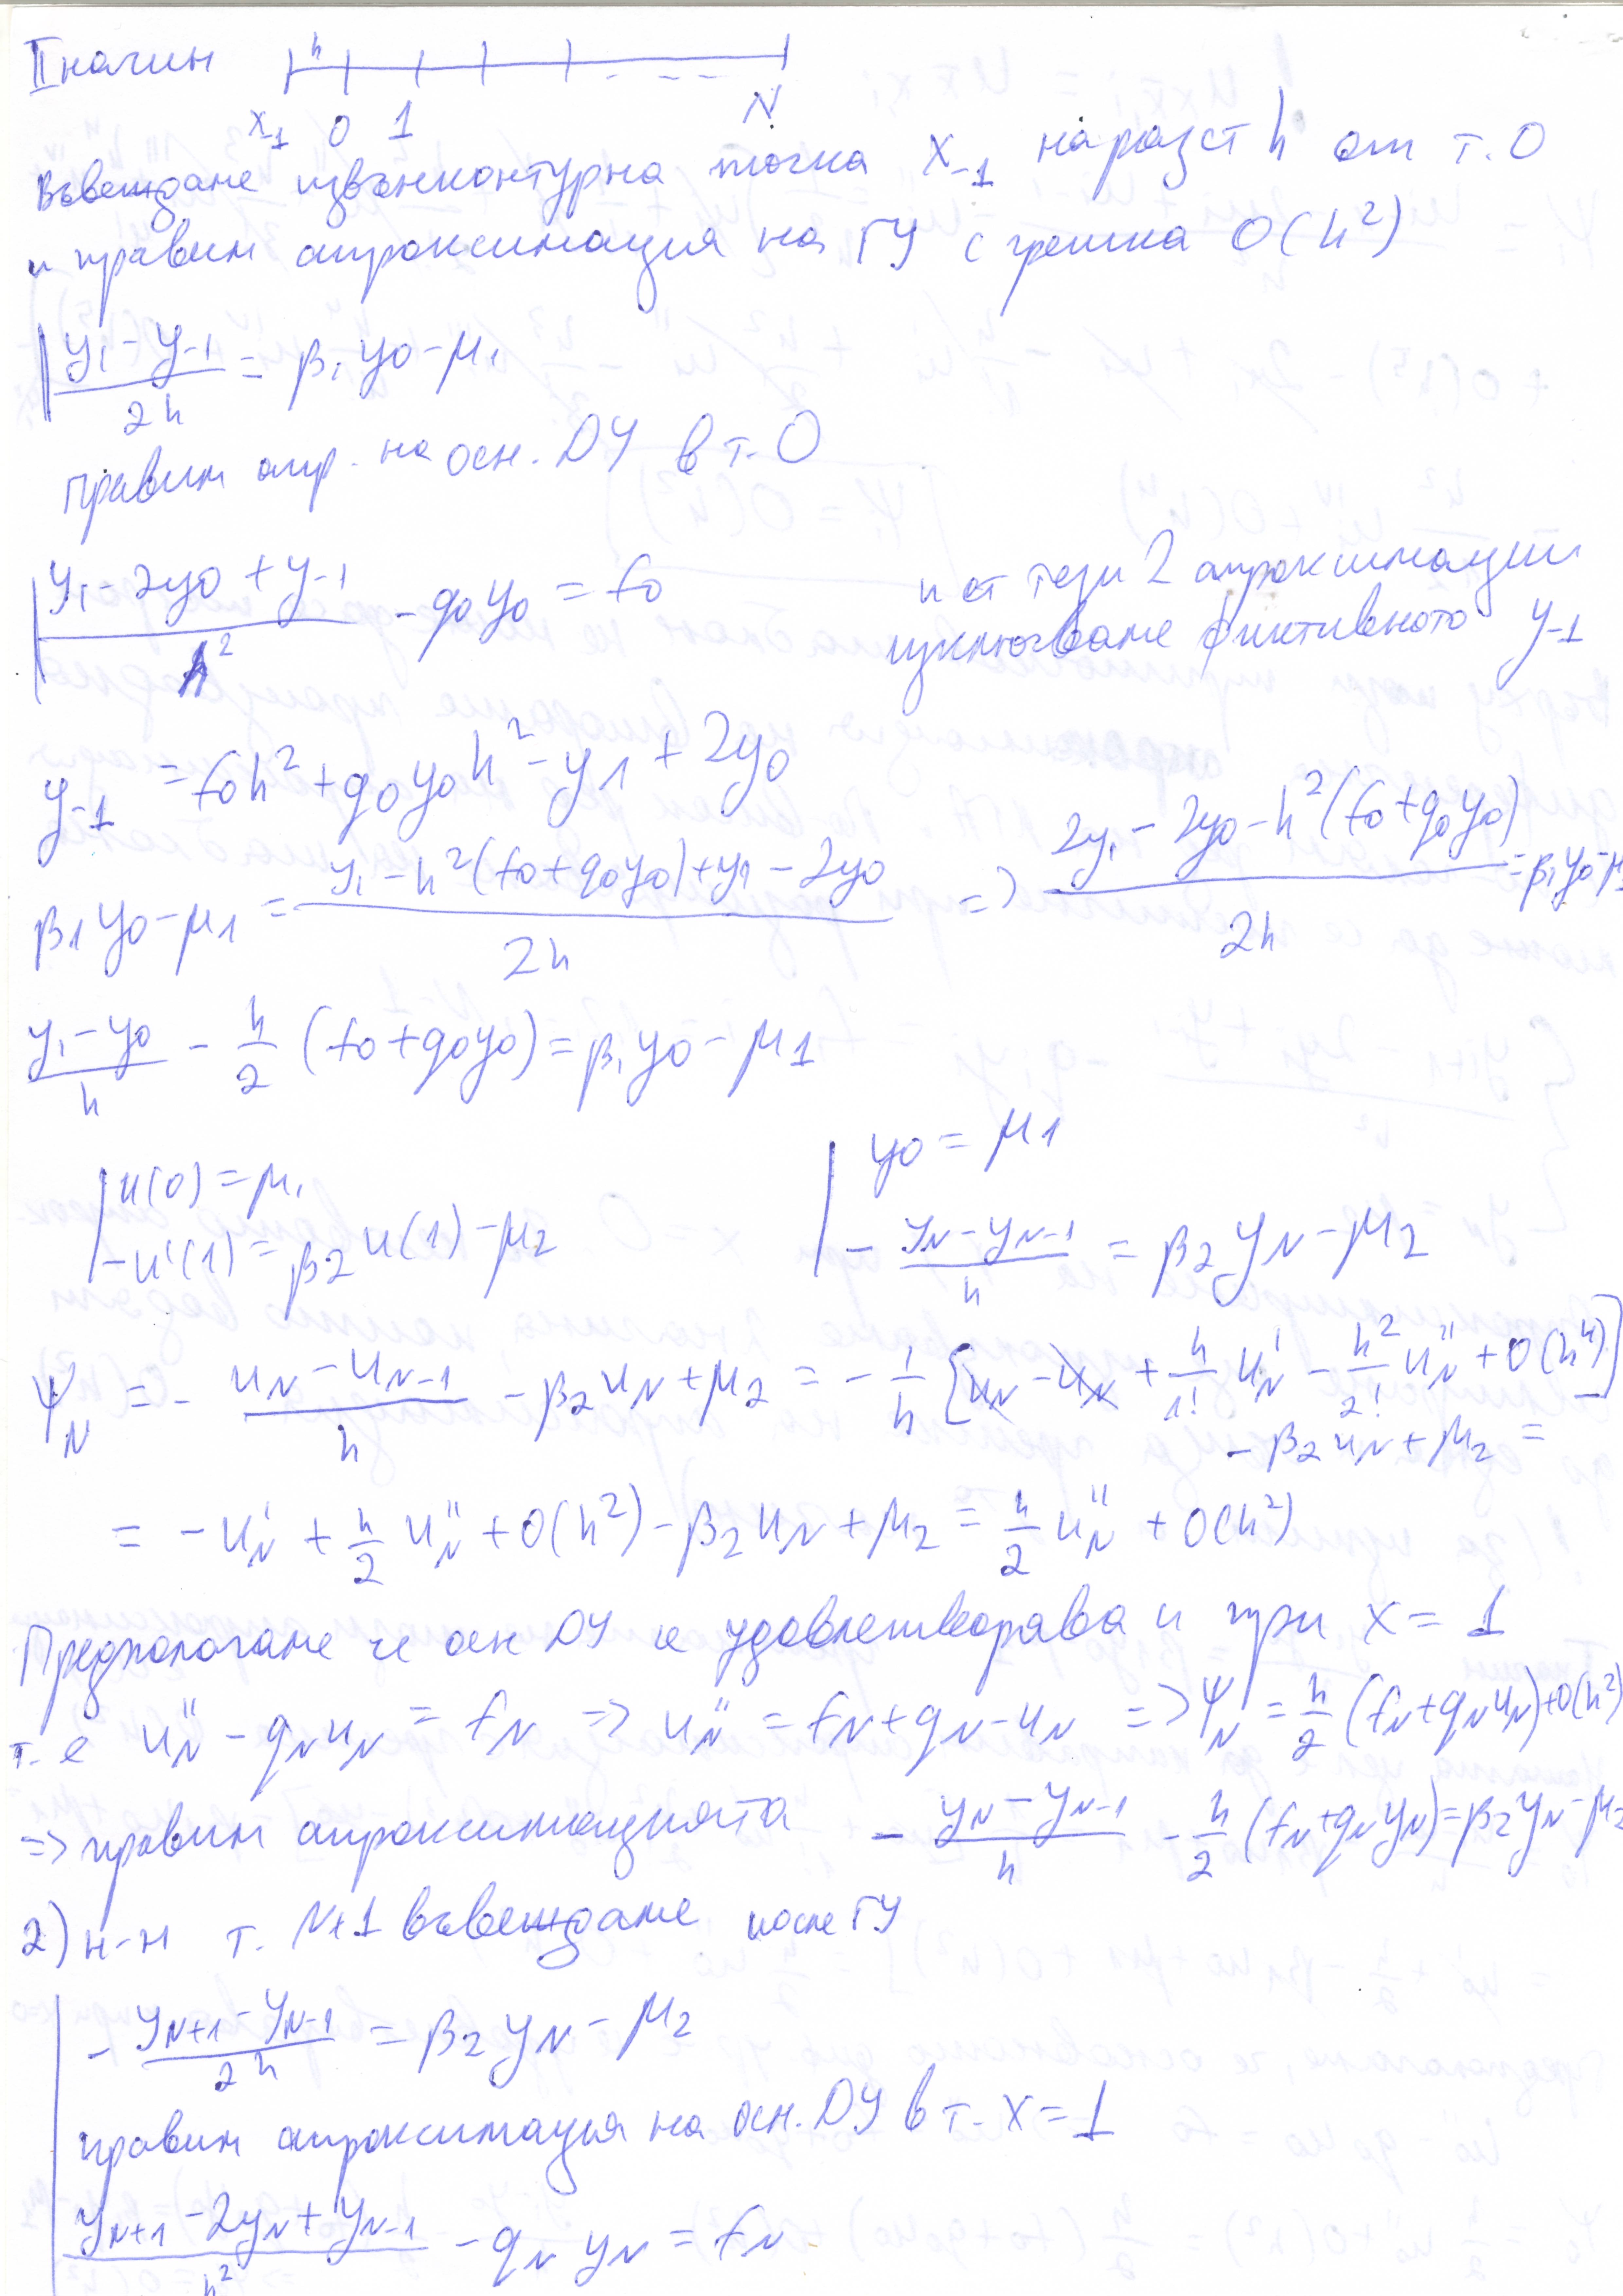 II начин h
x₋₁ 0 1 N
Въвеждаме извънконтурна точка x₋₁ на разст h от т. 0
и правим апроксимация на ГУ с грешка O(h²)
(y₁ - y₋₁)/2h = β₁y₀ - μ₁
Правим апр. на осн. ДУ в т. 0
(y₁ - 2y₀ + y₋₁)/h² - q₀y₀ = f₀
и от тези 2 апроксимации
изключваме фиктивното y₋₁
y₋₁ = f₀h² + q₀y₀h² - y₁ + 2y₀
β₁y₀ - μ₁ = (y₁ - h²(f₀ + q₀y₀) + y₁ - 2y₀)/2h => (2y₁ - 2y₀ - h²(f₀ + q₀y₀))/2h = β₁y₀ - μ₁
(y₁ - y₀)/h - h/2 (f₀ + q₀y₀) = β₁y₀ - μ₁
u(0) = μ₁
-u'(1) = β₂u(1) - μ₂
y₀ = μ₁
- (y_N - y_{N-1})/h = β₂y_N - μ₂
Ψ_N = - (u_N - u_{N-1})/h - β₂u_N + μ₂ = - 1/h [u_N - u_N + h/1! u'_N - h²/2! u''_N + O(h⁴)]
- β₂u_N + μ₂ =
= - u'_N + h/2 u''_N + O(h²) - β₂u_N + μ₂ = h/2 u''_N + O(h²)
Предполагаме че осн ДУ се удовлетворява и при x = 1
т.е u''_N - q_N u_N = f_N => u''_N = f_N + q_N - u_N => Ψ_N = h/2 (f_N + q_N u_N) + O(h²)
=> правим апроксимацията - (y_N - y_{N-1})/h - h/2 (f_N + q_N y_N) = β₂y_N - μ₂
2) н-н т. N+1 въвеждаме после ГУ
- (y_{N+1} - y_{N-1})/2h = β₂y_N - μ₂
правим апроксимация на осн. ДУ в т. x = 1
(y_{N+1} - 2y_N + y_{N-1})/h² - q_N y_N = f_N